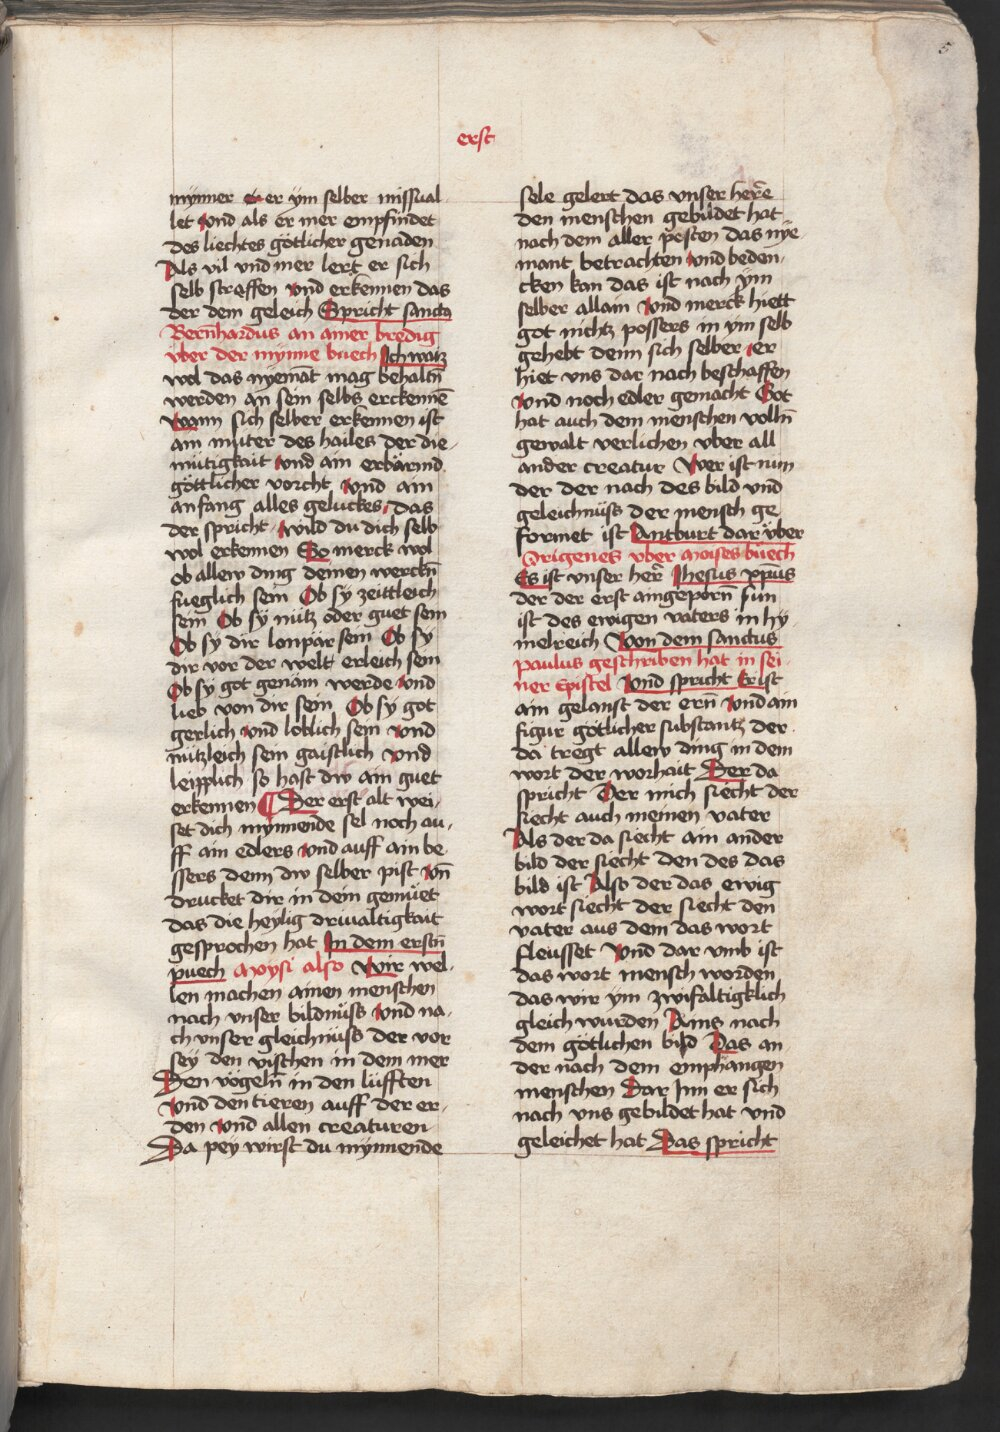 5
erst
mÿnner er er ÿm selber missual-
let vnd als er mer empfindet
des liechtes götlicher genaden
Als vil vnd mer lert er sich
selb streffen vnd erkennen das
der dem geleich Spricht sanctus
Bern̄hardus an ainer bredig
vber der mÿnne buech Ich waiz
wol das nÿemāt mag behaltn̄
werden an sein selbs erckennē
wann sich selber erkennen ist
ain muter des hailes der die-
mütigkait vnd ain erbärmd
göttlicher vorcht vnd ain
anfang alles geluckes das
der spricht wild du dich selb
wol erkennen So merck wol
ob allew ding deinen werckn̄
fueglich sein Ob sy zeittleich
sein Ob sy nütz oder guet sein
Ob sy dir lonpär sein Ob sy
dir vor der welt erleich sein
Ob sy got genäm werde vnd
lieb von dir sein Ob sy got
gerlich vnd löblich sein vnd
nützleich sein gaistlich vnd
leipplich so hast dw ain guet
erkennen ¶ Der erst alt wei-
set dich mÿnnende sel noch au-
ff ain edlers vnd auff ain be-
ssers denn dw selber pist vn̄
drucket dir in dein gemüet
das die heylig driualtigkait
gesprochen hat In dem erstn̄
puech Moysi also Wir wel-
len machen ainen menschen
nach vnser bildnüss vnd na-
ch vnser gleichnüss der vor
sey den vischen in dem mer
Den vögeln̄ in den lüfften
vnd den tieren auff der er-
den vnd allen creaturen
Da pey wirst du mÿnnende
sele gelert das vnser herr̄e
den menschen gebildet hat
nach dem aller pesten das nÿe
mant betrachten vnd beden-
cken kan das ist nach ÿm
selber allain vnd merck hiett
got nichtz possers in ÿm selb
gehebt denn sich selber er
hiet vns dar nach beschaffen
vnd noch edler gemacht Got
hat auch dem menschen volln̄
gewalt verlichen vber all
ander creatur Wer ist nun
der der nach des bild vnd
geleichnüss der mensch ge
formet ist Antburt dar vber
Origenes vber Moises büech
Es ist vnser her̄r Jhesus xp̄us
der der erst aingeporn̄ sun
ist des ewigen vaters in hÿ
melreich Von dem sanctus
paulus geschriben hat in sei-
ner Epistel vnd spricht Er ist
ain gelanst der ern̄ vnd ain
figur götlicher substantz der
da tregt allew ding in dem
wort der worhait Der da
spricht Der mich siecht der
siecht auch meinen vater
Als der da siecht ain ander
bild der siecht den des das
bild ist Also der das ewig
wort siecht der siecht den
vater aus dem das wort
fleusset Vnd dar vmb ist
das wort mensch worden
das wir ÿm zwifaltigklich
gleich wurden Ains nach
dem götlichen bild Das an-
der nach dem emphangen
menschen Dar Inn er sich
nach vns gebildet hat vnd
geleichet hat Das spricht